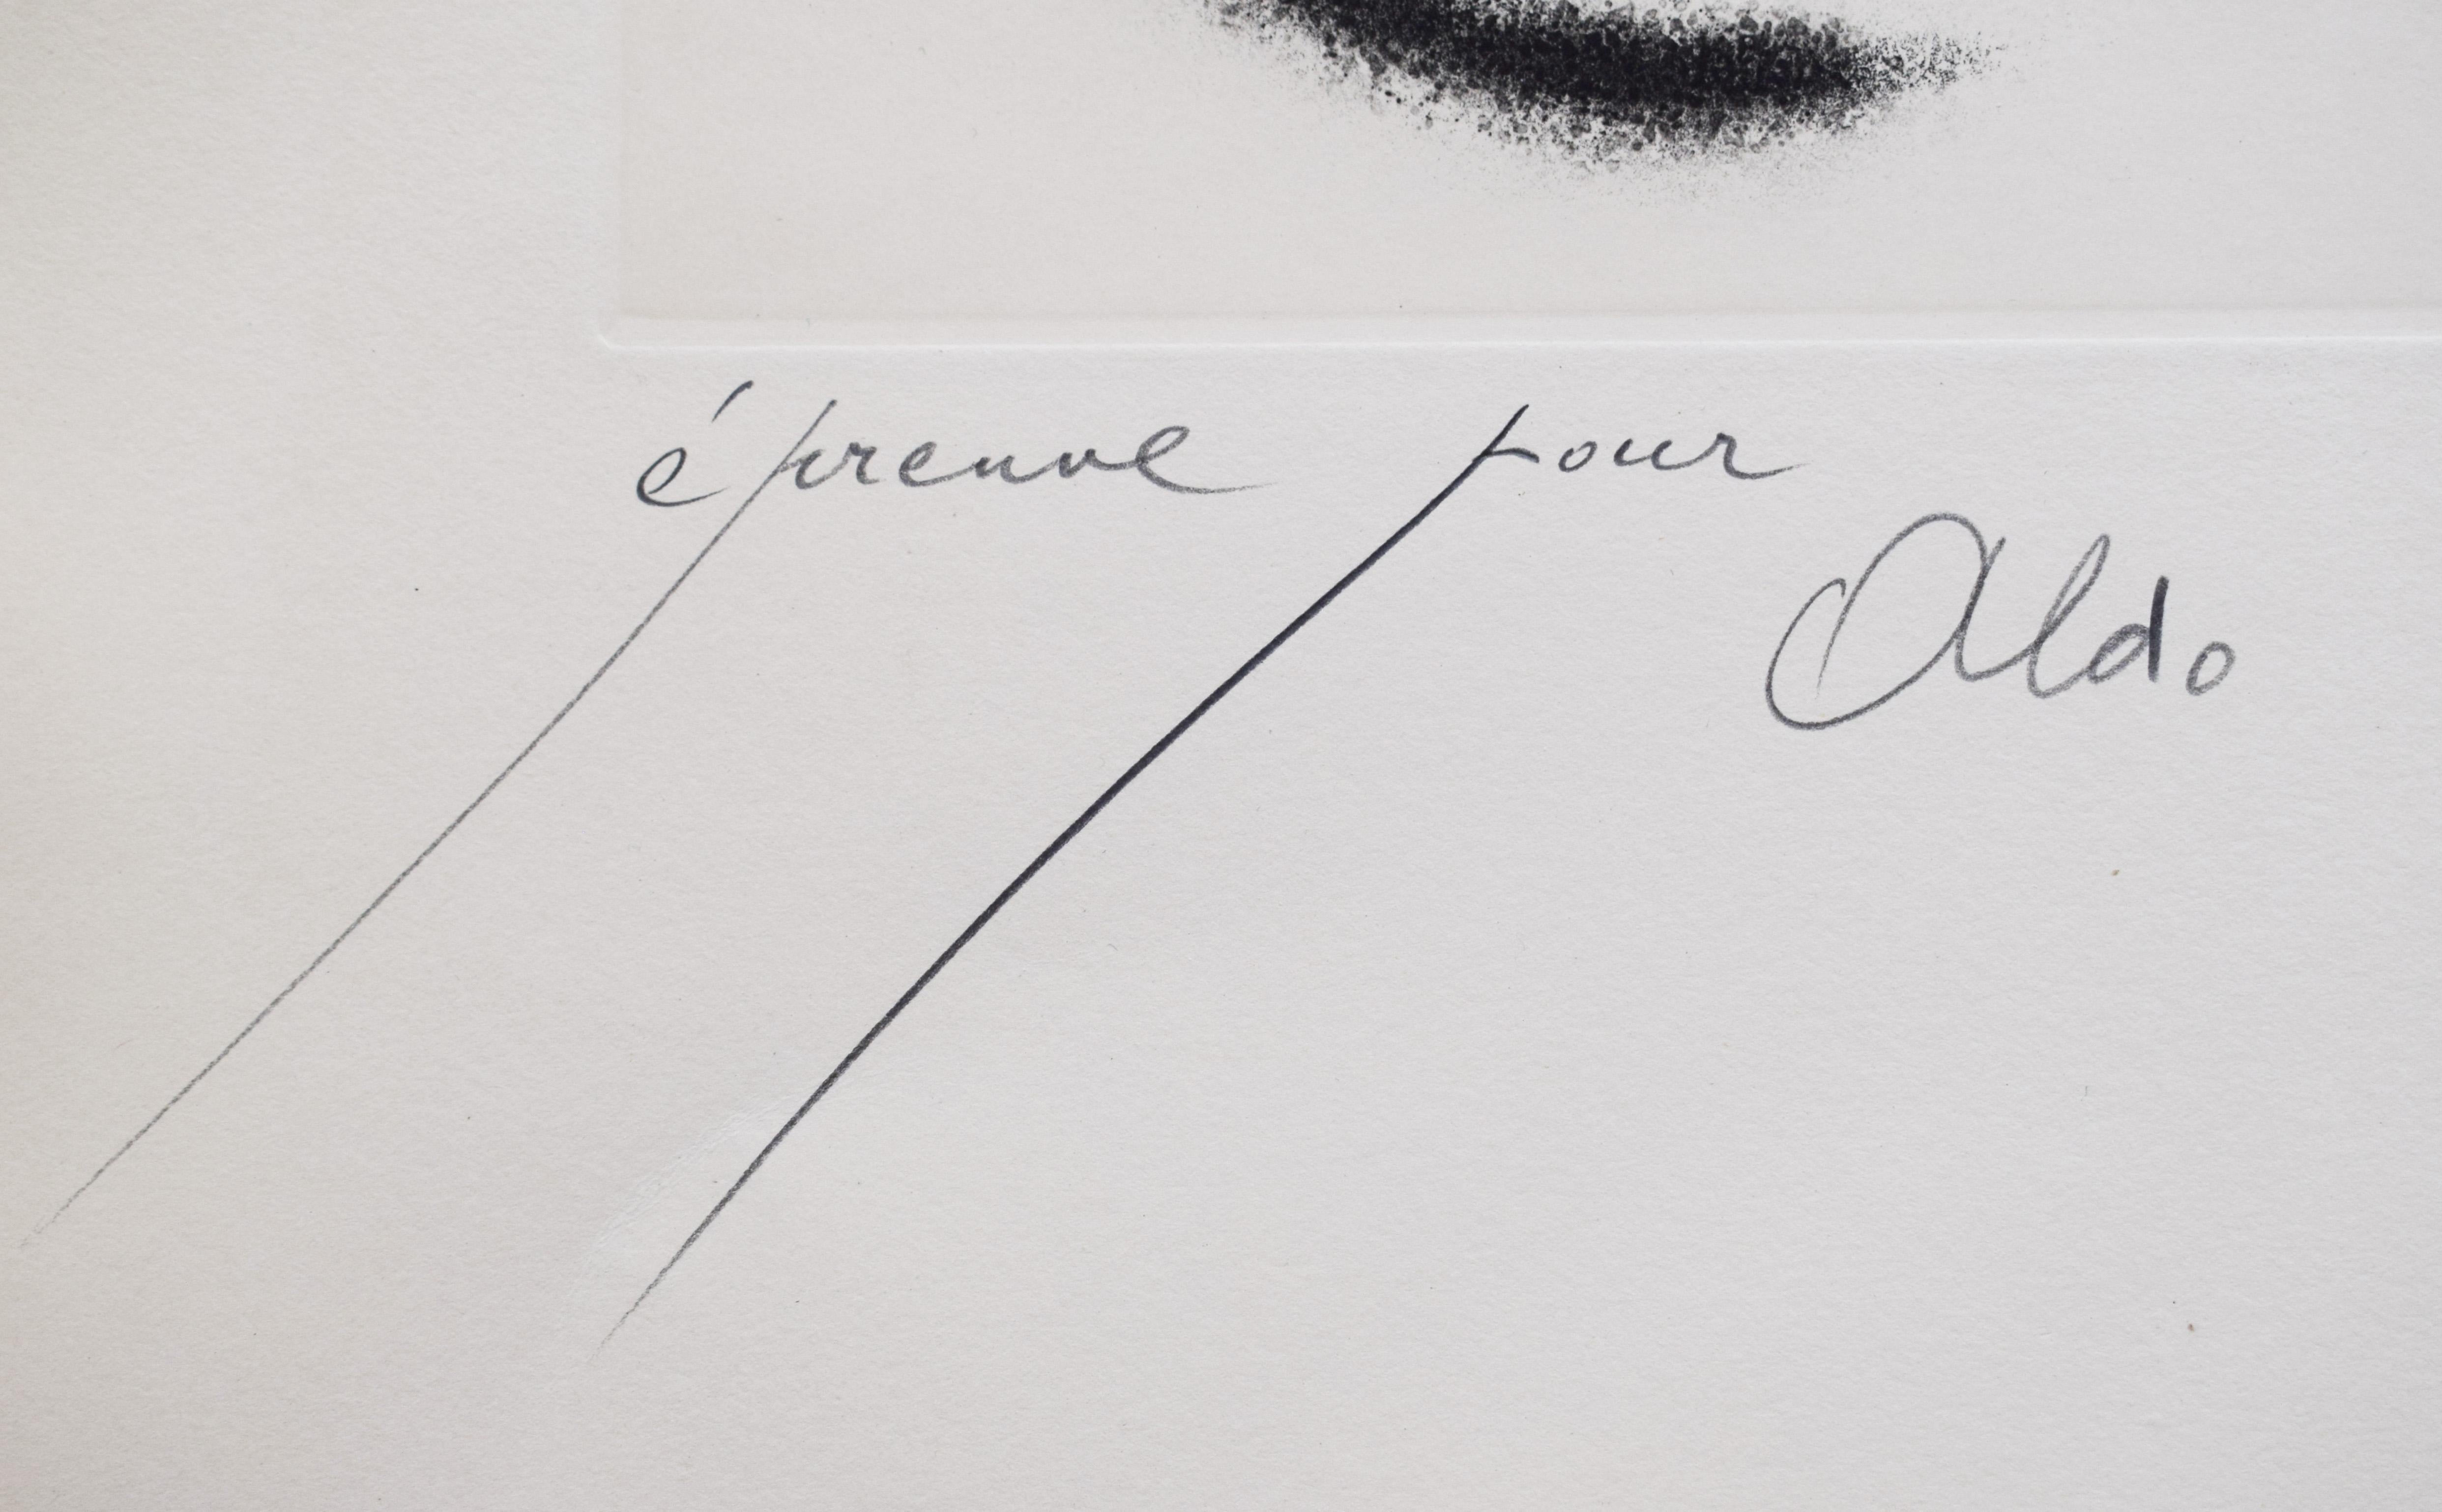 épreuve pour
Aldo